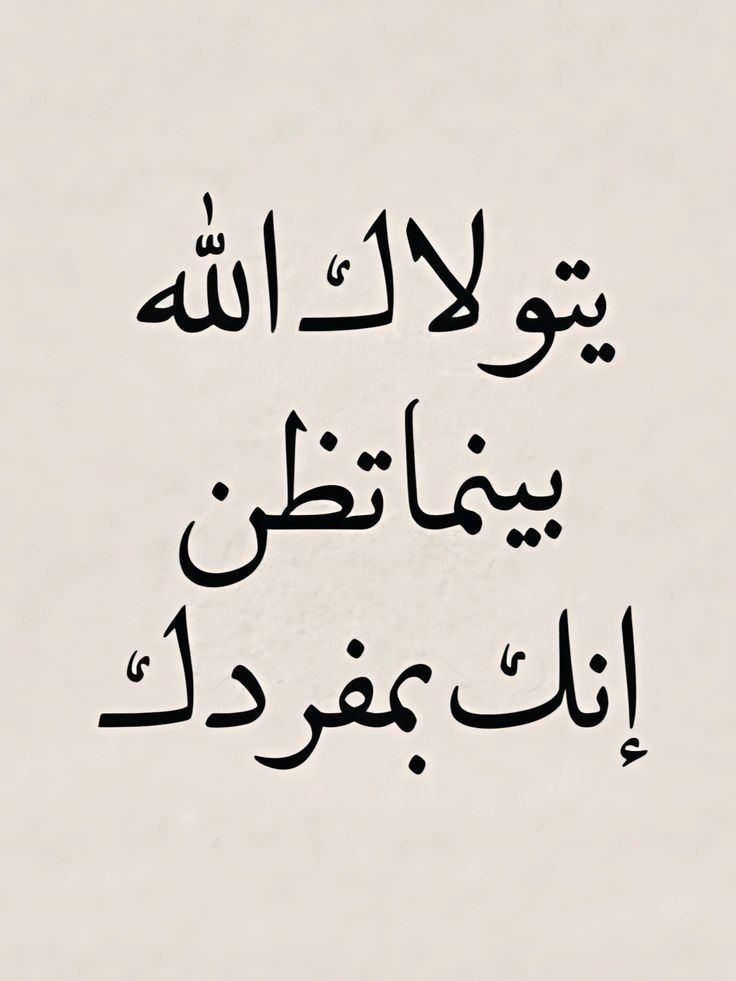 يتولاك الله
بينما تظن
إنك بمفردك